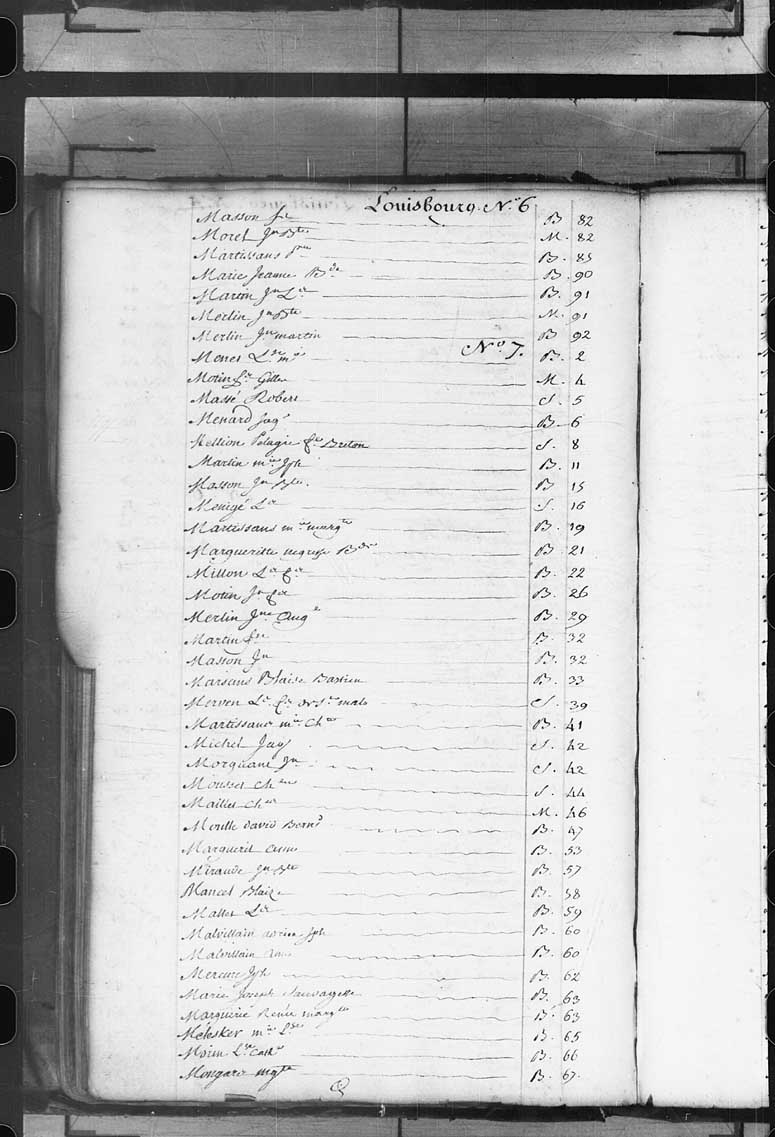 Louisbourg. No 6
Masson fr B 82
Moret Jn Bte M. 82
Martissans B. 85
Marie Jeanne Bde B. 90
Martin Jn Ls B. 91
Merlin Jn Bte M. 91
Merlin Jn martin B 92
No 7.
Menet Lse B. 2
Motin fr Gilles M. 4
Massé Robert S. 5
Menard Jaqs B. 6
Mellion Pelagie fe Breton S. 8
Martin mie Jph B. 11
Masson Jn Bte. B 15
Menigé Ls S. 16
Martissans mie margte B. 19
Margueritte negresse Bde B. 21
Millon Ls fr B. 22
Motin Jn fr B. 26
Merlin Jne Ange B. 29
Martin fr B. 32
Masson Jn B. 32
Marsans Blaise Bastien B. 33
Merven Ls fr de St malo S. 39
Martissans mie Ch B. 41
Michel Jaqs S. 42
Morquant Jn S. 42
Mousset Ch S. 44
Mailles Ch M. 46
Moulle david Bernd B. 47
Marguerit B. 53
Mirande Jn Bte B. 57
Mancel Blaize B. 58
Mallet Ls B. 59
Malvillain Jph B. 60
Malvillain B. 60
Mercure Jph B. 62
Marie Joseph Sauvagesse B. 63
Marguerie Renée margte B. 63
Mélesker mie Lse B. 65
Morin Lse Cathe B. 66
Mongaro mgte B. 67.